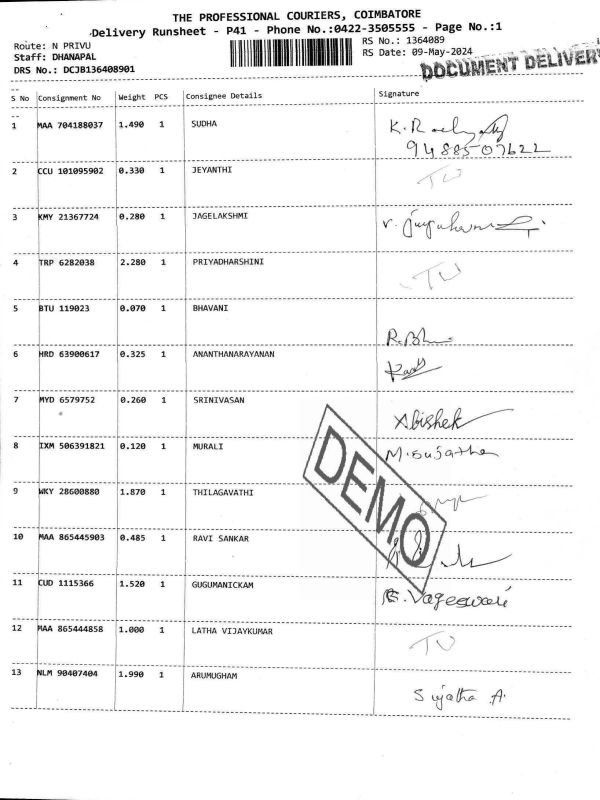 THE PROFESSIONAL COURIERS, COIMBATORE
Delivery Runsheet - P41 - Phone No.:0422-3505555 - Page No.:1
Route: N PRIVU
RS No.: 1364089
Staff: DHANAPAL
RS Date: 09-May-2024
DRS No.: DCJB136408901
DOCUMENT DELIVERY
S No Consignment No Weight PCS Consignee Details Signature
1 MAA 704188037 1.490 1 SUDHA
9488507622
2 CCU 101095902 0.330 1 JEYANTHI
3 KMY 21367724 0.280 1 JAGELAKSHMI
4 TRP 6282038 2.280 1 PRIYADHARSHINI
5 BTU 119023 0.070 1 BHAVANI
6 HRD 63900617 0.325 1 ANANTHANARAYANAN
7 MYD 6579752 0.260 1 SRINIVASAN Abishek
8 IXM 506391821 0.120 1 MURALI M.Sujatha
9 WKY 28600880 1.870 1 THILAGAVATHI
DEMO
10 MAA 865445903 0.485 1 RAVI SANKAR
11 CUD 1115366 1.520 1 GUGUMANICKAM
12 MAA 865444858 1.000 1 LATHA VIJAYKUMAR
13 NLM 90407404 1.990 1 ARUMUGHAM Sujatha A.